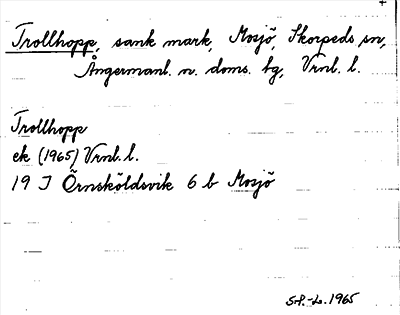 Trollhopp, sank mark, Mosjö, Skorpeds sn,
Ångermanl. n. doms. bg, Vrnl. l.
Trollhopp
ek (1965) Vrnl. l.
19 J Örnsköldsvik 6 b Mosjö
1965